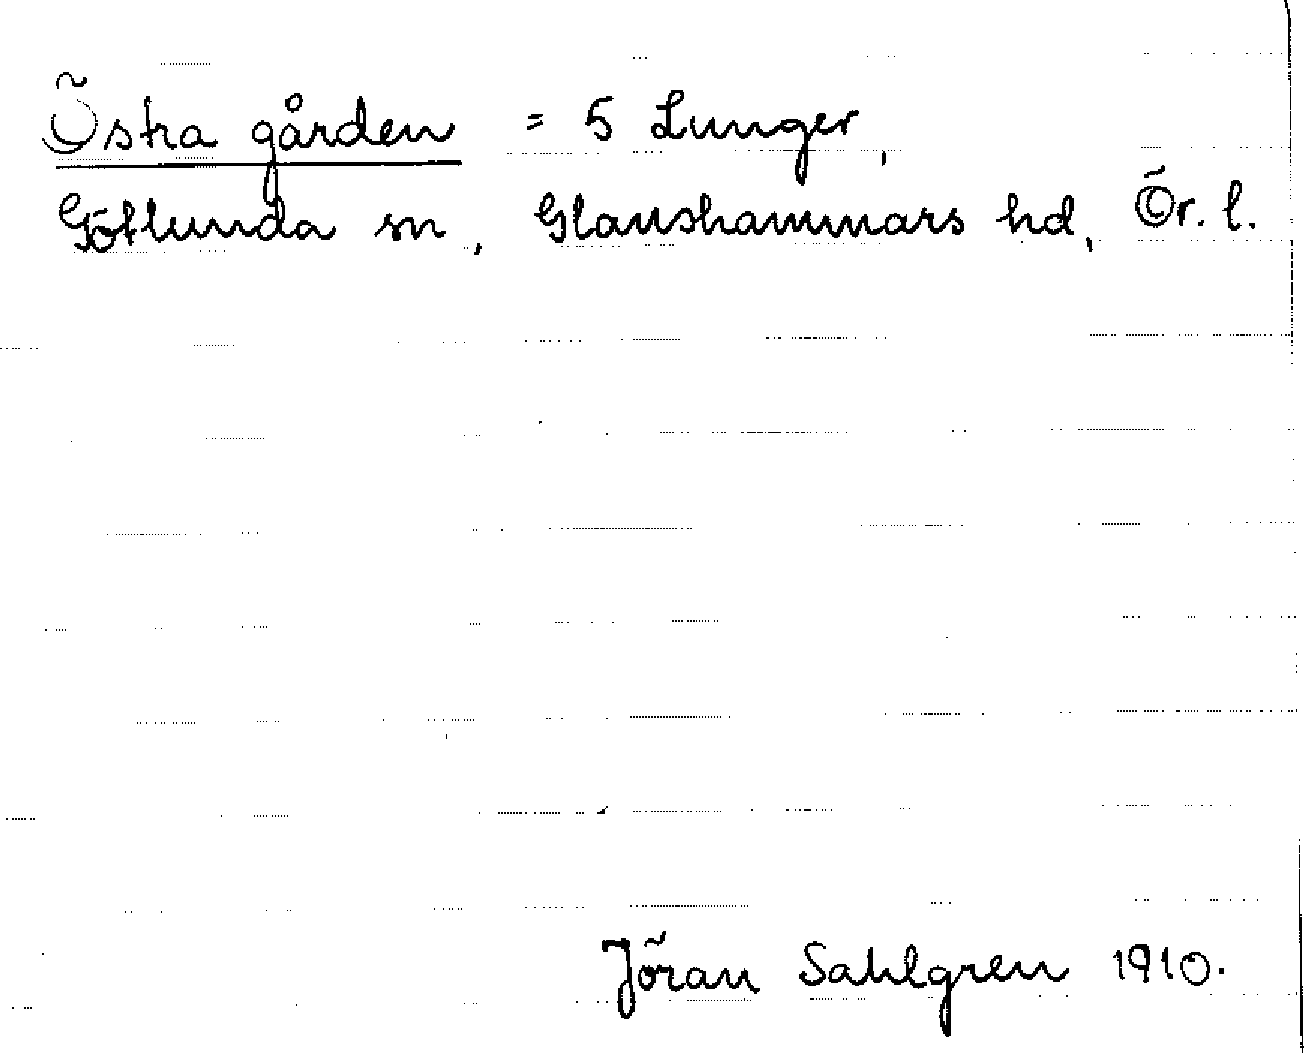 Östra gården = 5 Lunger,
Götlunda sn, Glanshammars hd, Ör. l.
Jöran Sahlgren 1910.